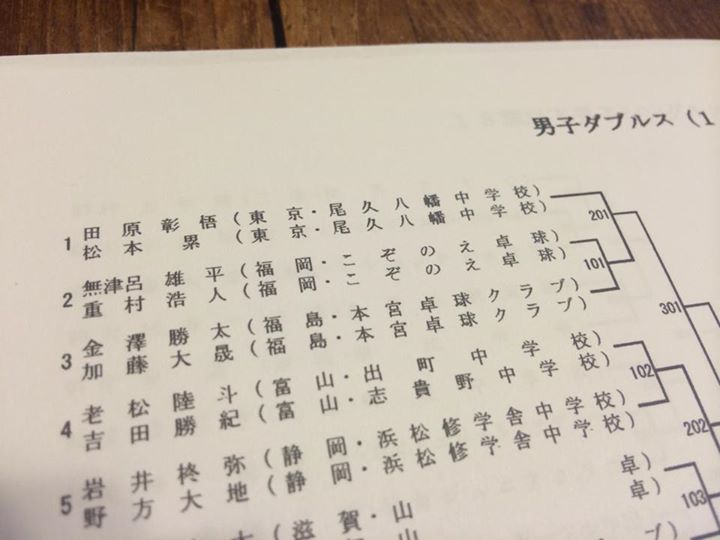 男子ダブルス(1
1 田原彰悟(東京・尾久八幡中学校)
松本累(東京・尾久八幡中学校)
201
2 無津呂雄平(福岡・こぞのえ卓球)
重村浩人(福岡・こぞのえ卓球)
101
3 金澤勝太(福島・本宮卓球クラブ)
加藤大晟(福島・本宮卓球クラブ)
301
4 老松陸斗(富山・出町中学校)
吉田勝紀(富山・志貴野中学校)
102
202
5 岩井柊弥(静岡・浜松修学舎中学校)
野方大地(静岡・浜松修学舎中学校)
103
(滋賀・山 卓)
賀・山 卓)